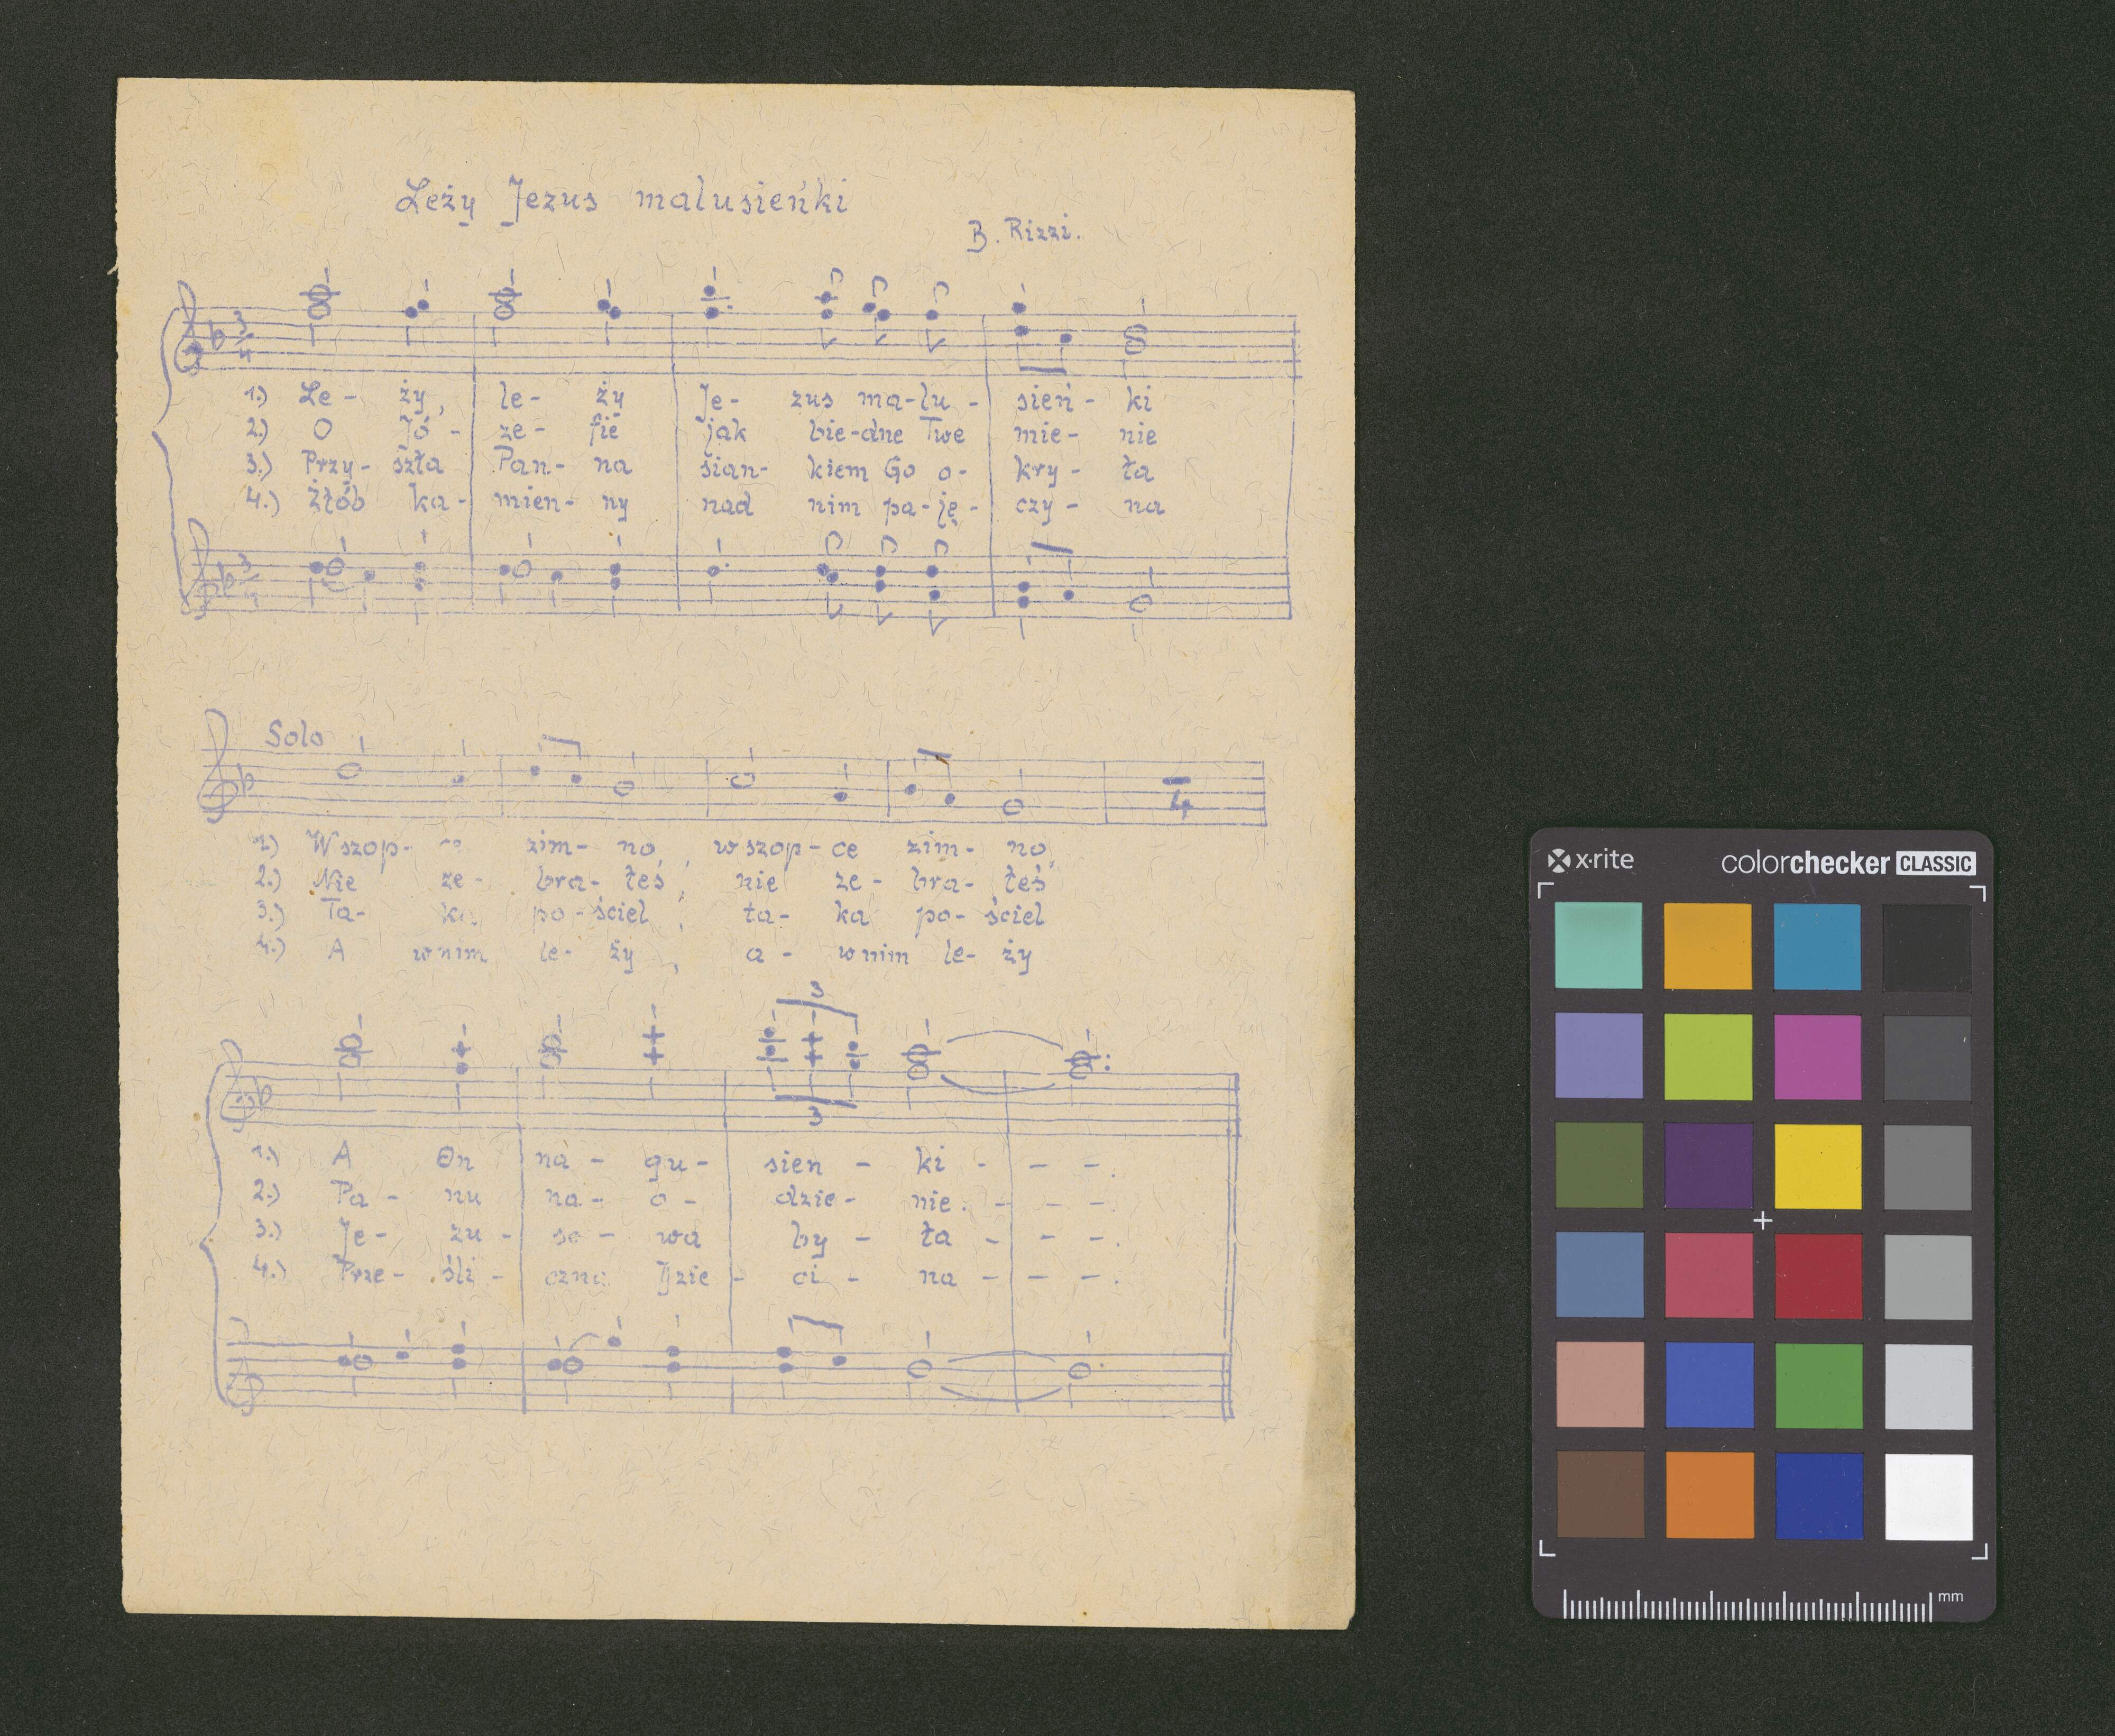 Leży Jezus malusieńki
B. Rizzi.
3 4
1.) Le- ży, le- ży Je- zus ma-lu- sień- ki
2.) O Jó- ze- fie jak bie-dne Twe mie- nie
3.) Przy- szła Pan- na sian- kiem Go o- kry- ta
4.) Żłób ka- mien- ny nad nim pa-ję- czy- na
3
Solo
4
1) W szop- zim- no, w szop- ce zim- no,
2.) Nie ze- bra- łeś, nie ze- bra- łeś
3.) Ta- ka po- ściel, ta- ka po- ściel
4.) A w nim le- ży, a- w nim le- ży
3
3
1.) A On na- gu- sien- ki - - -.
2.) Pa- nu na- o- dzie- nie. - - -.
3.) Je- zu- so- wa by- ła - - -.
4.) Prze- śli- czna Dzie- ci- na - - -.
x·rite colorchecker CLASSIC
mm